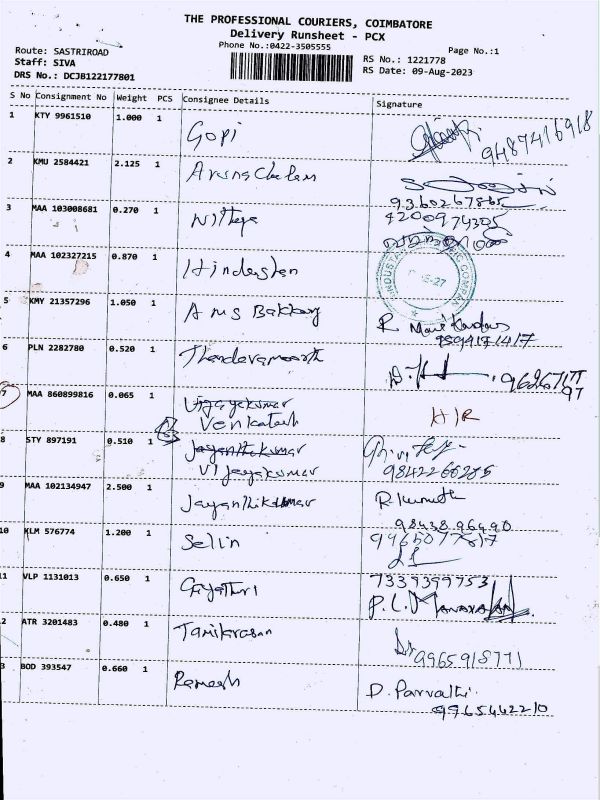 THE PROFESSIONAL COURIERS, COIMBATORE
Delivery Runsheet - PCX
Phone No.:0422-3505555
Page No.:1
Route: SASTRIROAD
Staff: SIVA
DRS No.: DCJB122177801
RS No.: 1221778
RS Date: 09-Aug-2023
S No Consignment No Weight PCS Consignee Details Signature
1 KTY 9961510 1.000 1 Gopi
9487416918
2 KMU 2584421 2.125 1 Arunachalam
9360267865
3 MAA 103008681 0.270 1 Nithya 4200974305
4 MAA 102327215 0.870 1 Hindustan
5 KMY 21357296 1.050 1 Ams Bakkary R.
6 PLN 2282780 0.520 1
7 MAA 860899816 0.065 1 Vijayakumar H/R
Venkatash
8 STY 897191 0.510 1 Jayanthikumar
Vijayakumar 9842266285
9 MAA 102134947 2.500 1 Jayanthikumar R.
98438 96490
10 KLM 576774 1.200 1 Sellin
1 VLP 1131013 0.650 1 Gayathri 7339399753
P.L.
2 ATR 3201483 0.480 1 Tamilarasan
9965918771
3 BOD 393547 0.660 1 Ramesh D. Parvathi.
9965442210